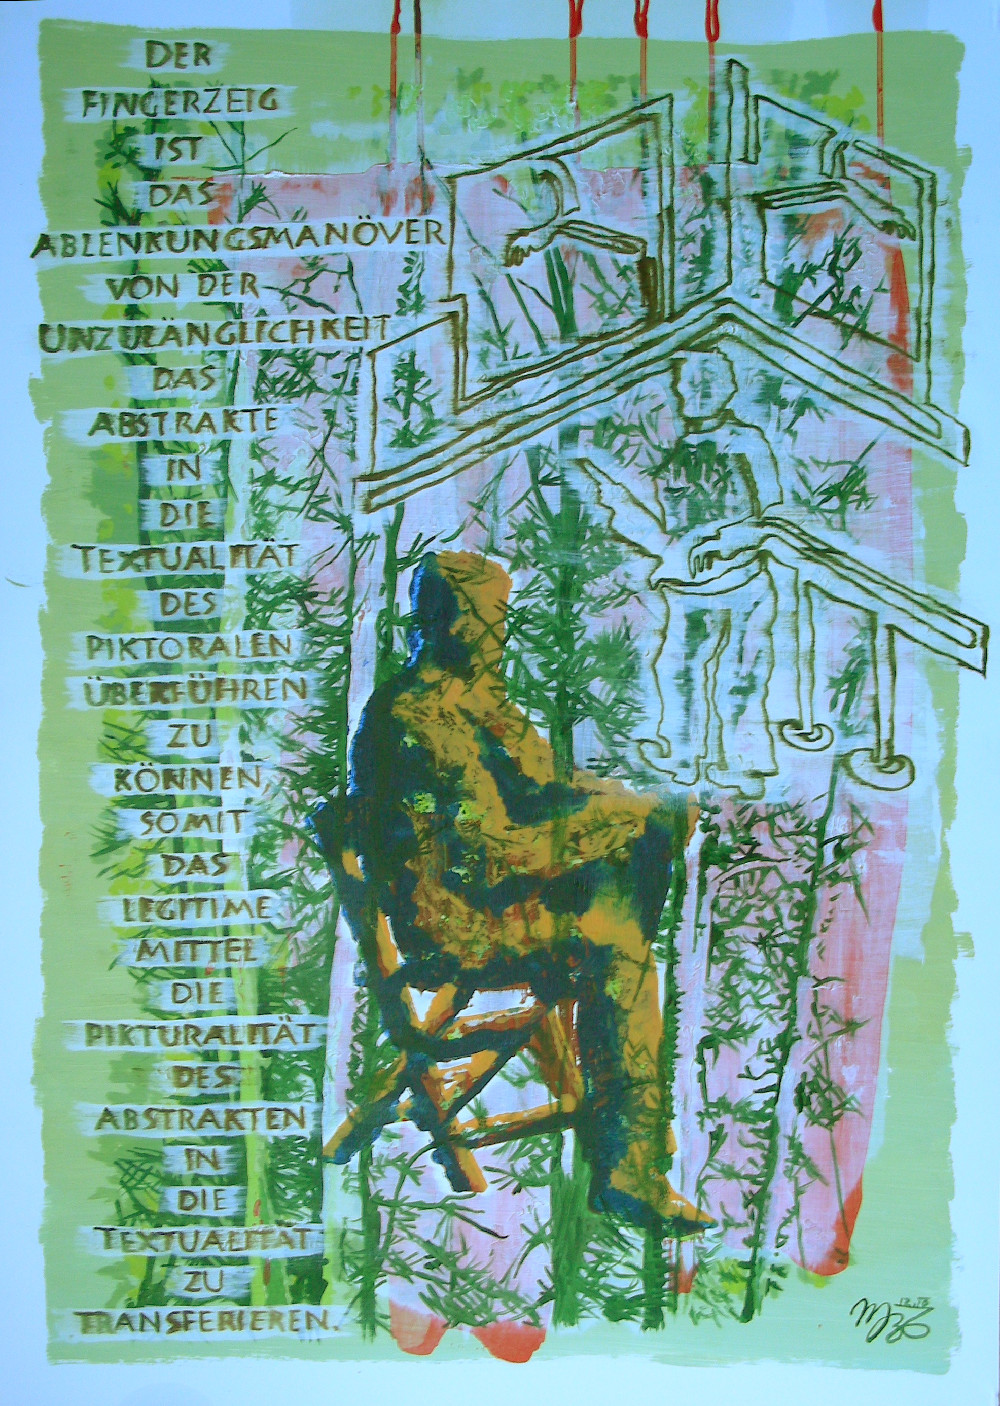 DER
FINGERZEIG
IST
DAS
ABLENKUNGSMANÖVER
VON DER
UNZULÄNGLICHKEIT
DAS
ABSTRAKTE
IN
DIE
TEXTUALITÄT
DES
PIKTORALEN
ÜBERFÜHREN
ZU
KÖNNEN,
SOMIT
DAS
LEGITIME
MITTEL
DIE
PIKTURALITÄT
DES
ABSTRAKTEN
IN
DIE
TEXTUALITÄT
ZU
TRANSFERIEREN.